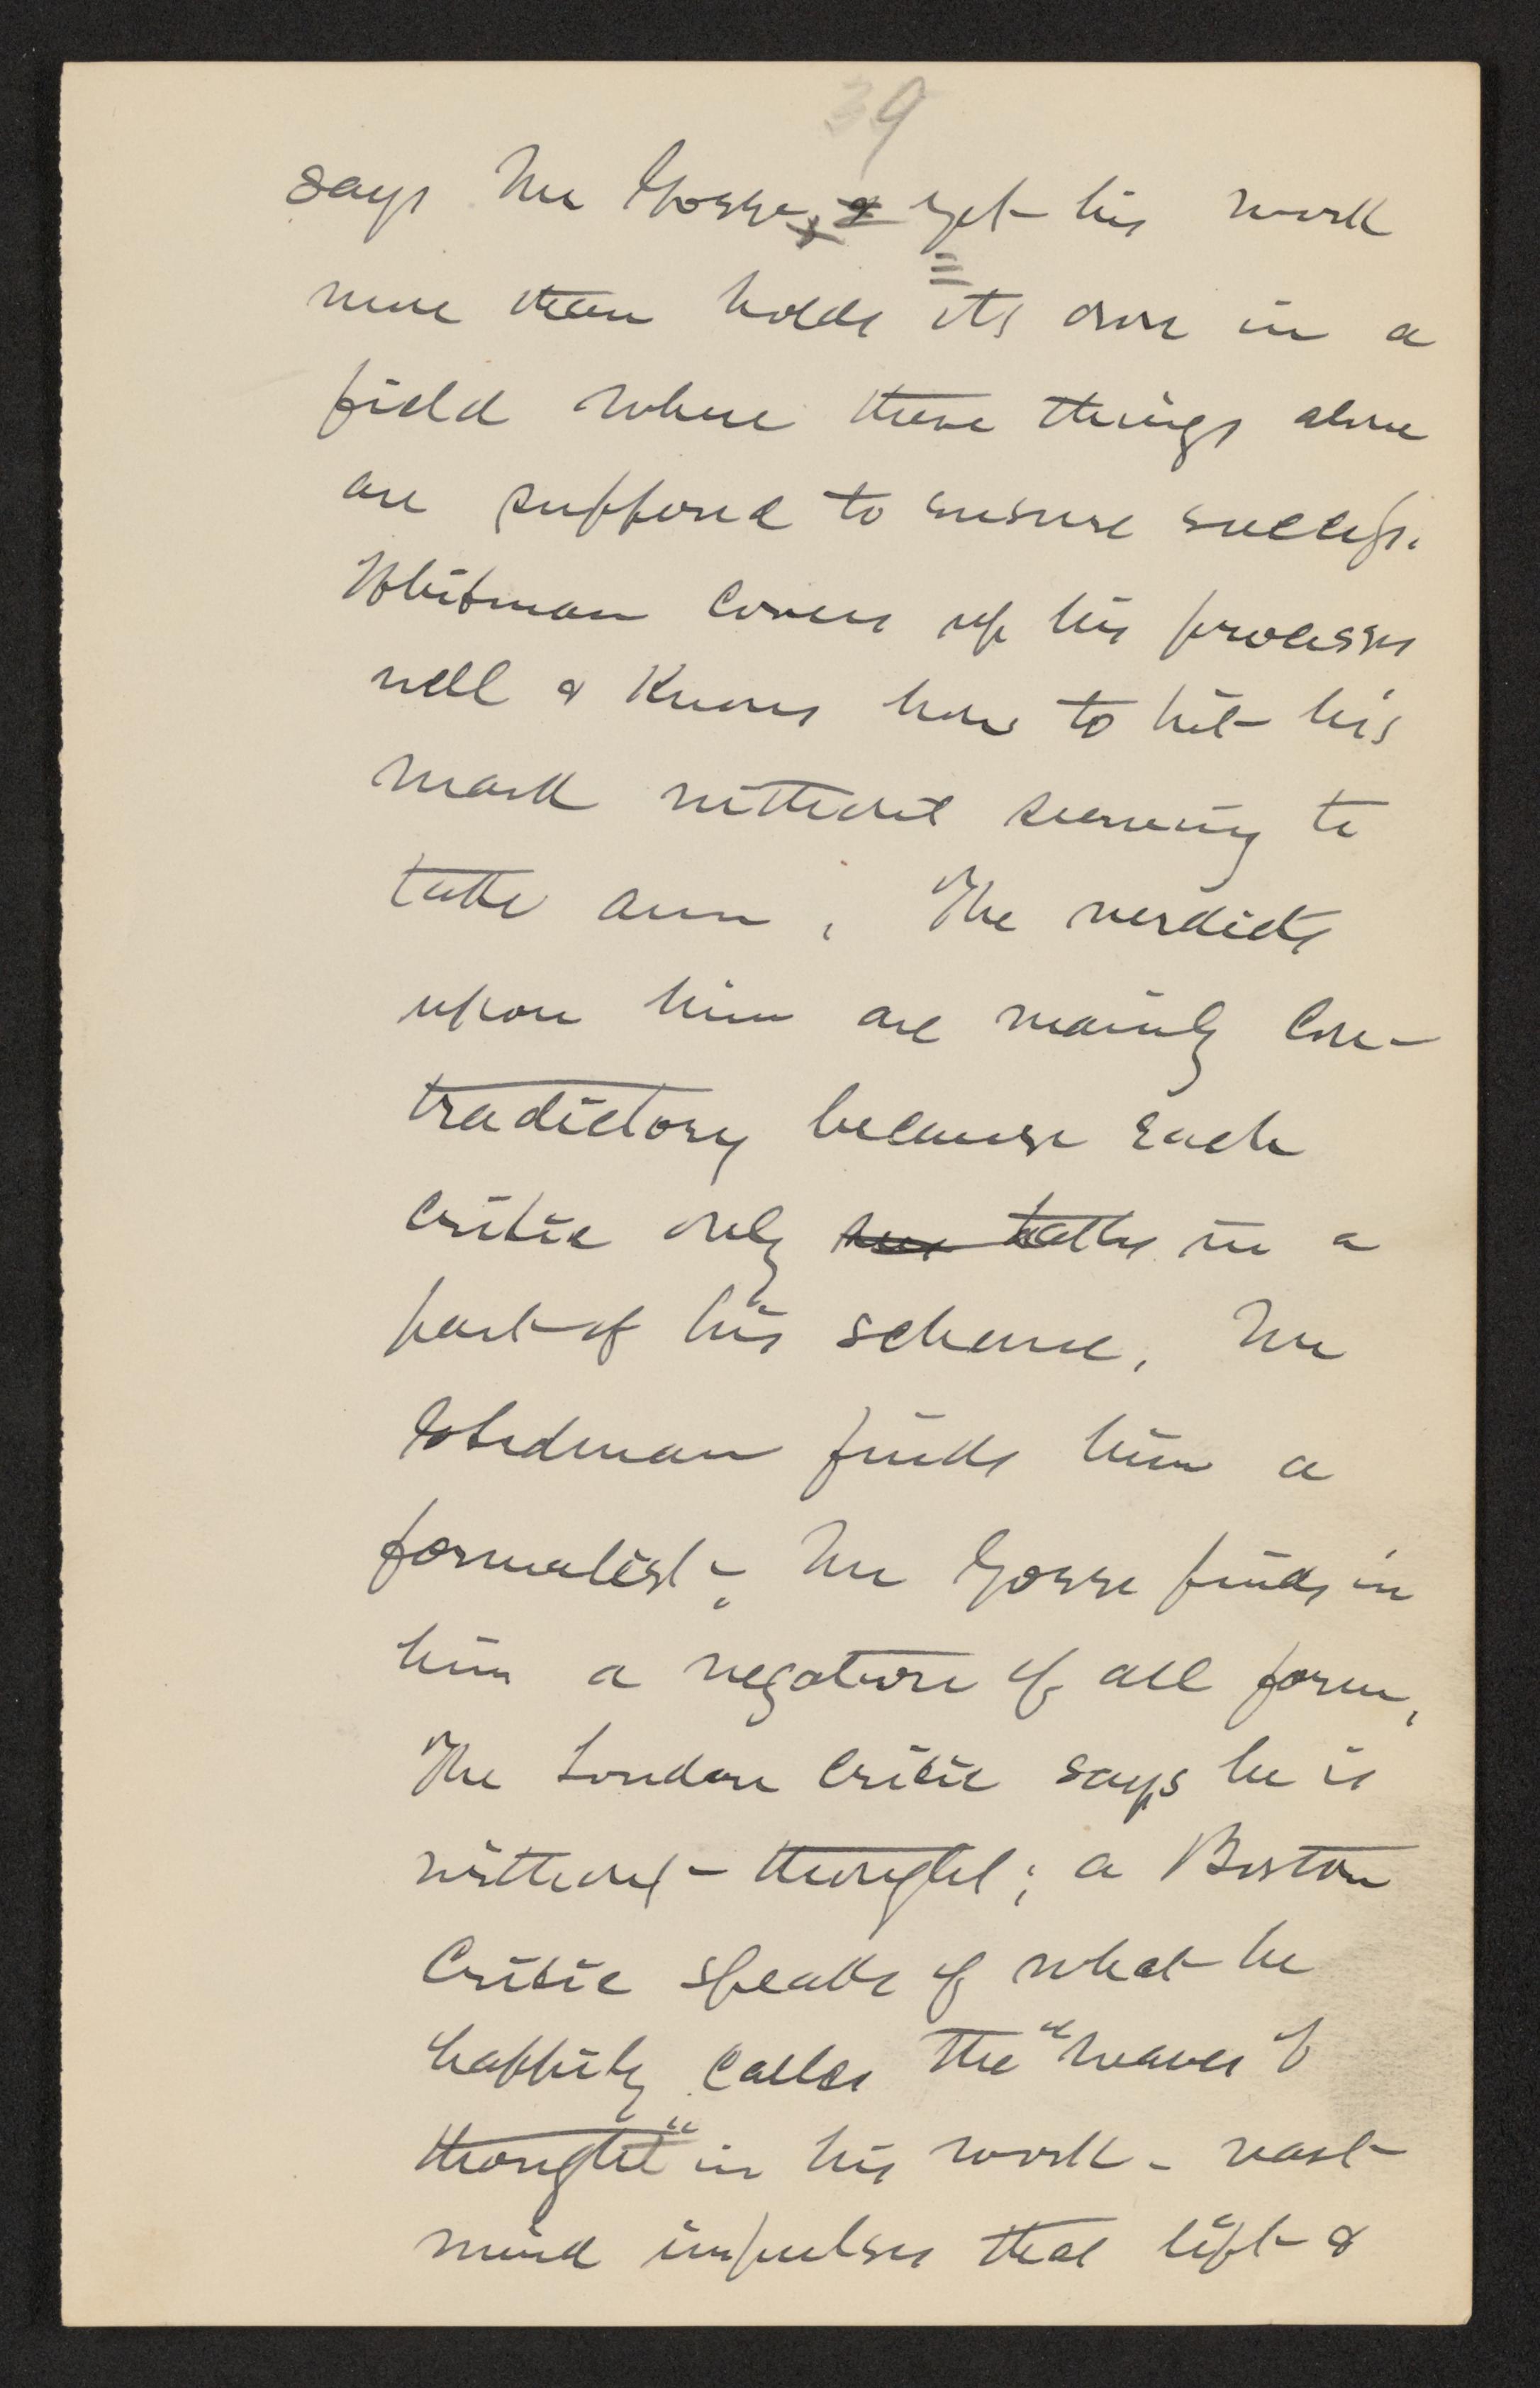 39
says Mr Gosse, & yet his work
more than holds its own in a
field where these things alone
are supposed to ensure success.
Whitman covers up his processes
well & knows how to hit his
mark without seeming to
take aim. The verdicts
upon him are mainly con-
tradictory because each
critic only sees takes in a
part of his scheme. Mr
Stedman finds him a
formalist; Mr Gosse finds in
him a negation of all form.
The London critic says he is
without thought; a Boston
critic speaks of what he
happily calls the "waves of
thought" in his work - vast
mind impulses that lift &